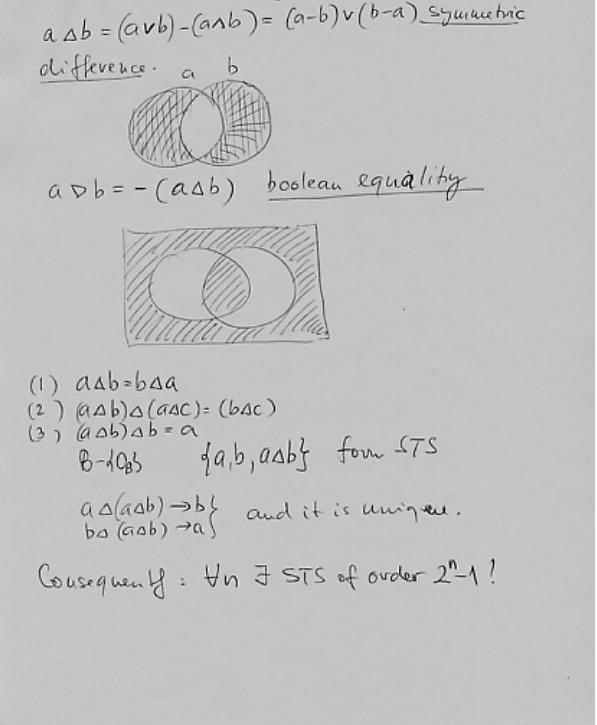 a Δ b = (a∨b) - (a∧b) = (a-b)∨(b-a) symmetric
difference.
a b
a ▷ b = - (a Δ b) boolean equality
(1) aΔb=bΔa
(2) (aΔb)Δ(aΔc)= (bΔc)
(3) (aΔb)Δb = a
B-{0_B} {a,b, aΔb} form STS
aΔ(aΔb) →b}
bΔ(aΔb) →a} and it is unique.
Consequently : ∀n ∃ STS of order 2^n-1 !